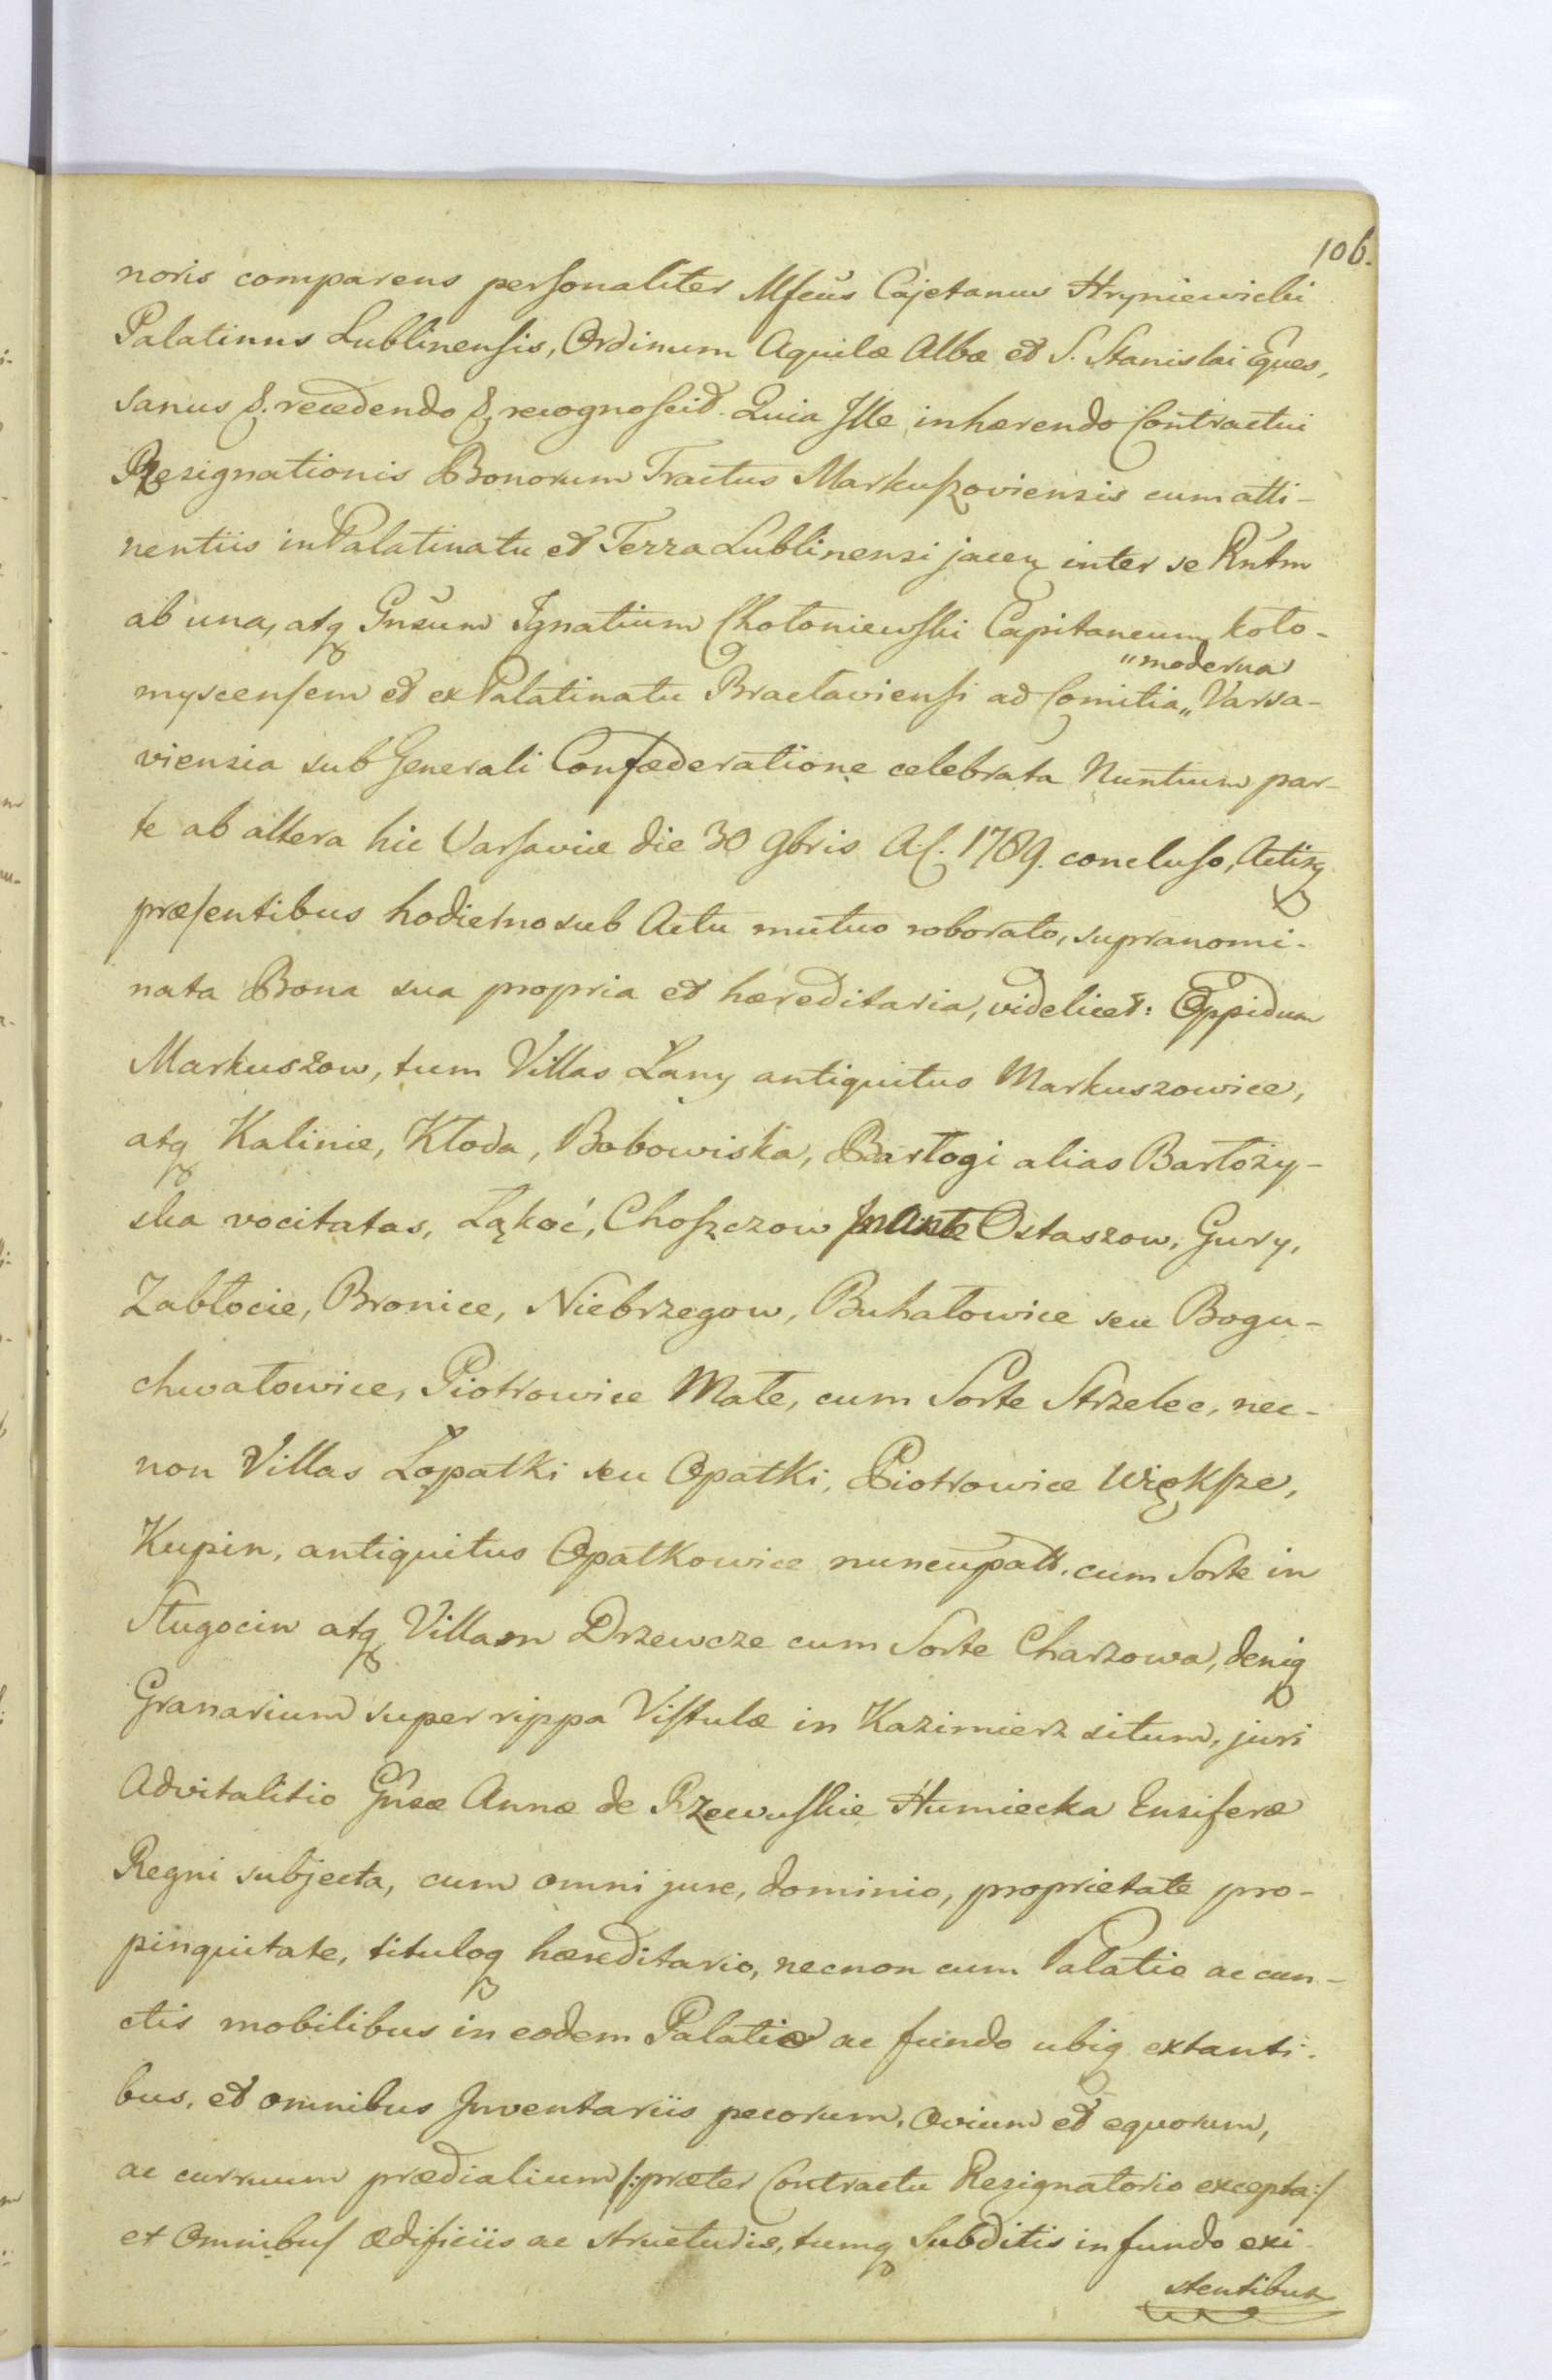 106.
noris comparens personaliter Mfcus Cajetanus Hryniewicki
Palatinus Lublinensis, Ordinum Aquilæ Albæ et S. Stanislai Eques,
sanus &. recedendo &, recognoscit. Quia Ille inhærendo Contractui
Resignationis Bonorum Tractus Markuszoviensis cum atti-
nentiis in Palatinatu et Terra Lublinensi jacen inter se Rntm
ab una, atq Gnsum Ignatium Chołoniewski Capitaneum koło-
"moderna
myscensem et ex Palatinatu Bracłaviensi ad Comitia „ Varsa-
viensia sub Generali Confæderatione celebrata Nuntium par-
te ab altera hic Varsaviæ die 30 9bris A.C. 1789. concluso, Actisq
præsentibus hodierno sub Actu mutuo roborato, supranomi-
nata Bona sua propria et hæreditaria, videlicet: Oppidum
Markuszow, tum Villas Łany antiquitus Markuszowice,
atq Kalinie, Kłoda, Bobowiska, Barłogi alias Barłoży-
ska vocitatas, Łąkoć, Choszczow Ostaszow, Gury,
Zabłocie, Bronice, Niebrzegow, Buhałowice seu Bogu-
chwałowice, Piotrowice Małe, cum Sorte Strzelec, nec-
non Villas Łopatki seu Opatki, Piotrowice Większe,
Kupin, antiquitus Opatkowice nuncupatt. cum Sorte in
Sługocin atq Villam Drzewcze cum Sorte Charzowa, deniq
Granarium super rippa Vistulæ in Kazimierz situm, juri
Advitalitio Gnsæ Annæ de Rzewuskie Humiecka Ensiferæ
Regni subjecta, cum omni jure, dominio, proprietate pro-
pinquitate, tituloq hæreditario, necnon cum Palatio ac cun-
ctis mobilibus in eodem Palatio ac fundo ubiq extanti-
bus, et omnibus Inventariis pecorum, ovium et equorum,
ac curruum prædialium /:præter Contractu Resignatorio excepta:/
et Omnibus ædificiis ac structuris, tumq Subditis in fundo exi-
stentibus